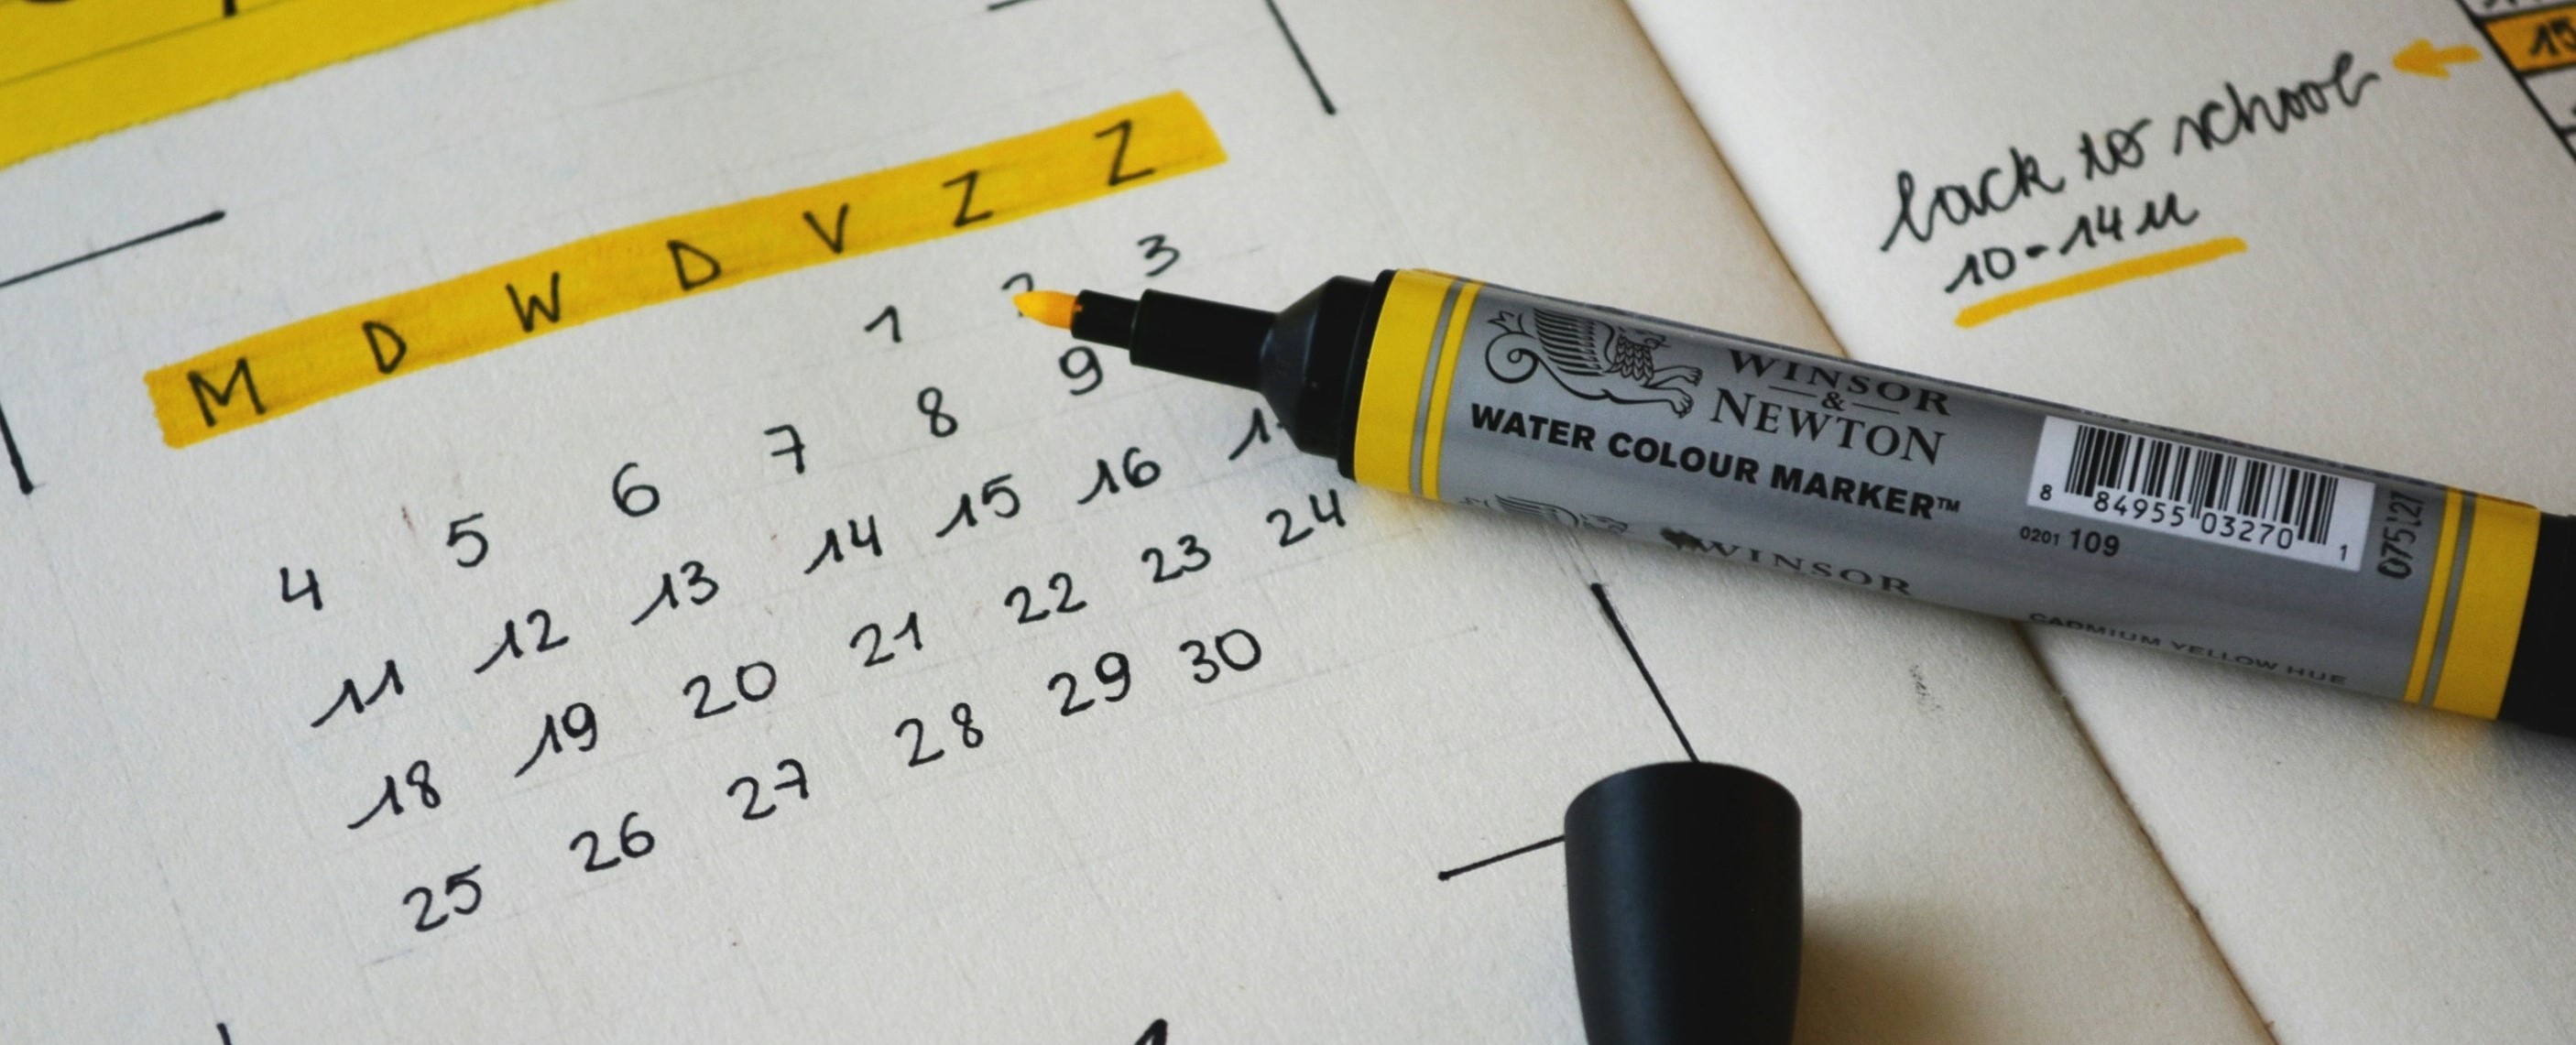 M D W D V Z Z
1 2 3
4 5 6 7 8 9
11 12 13 14 15 16
18 19 20 21 22 23 24
25 26 27 28 29 30
back to school
10-14 u
15
WINSOR
&
NEWTON
WATER COLOUR MARKER™
8 84955 03270 1
0201 109
075127
WINSOR
CADMIUM YELLOW HUE